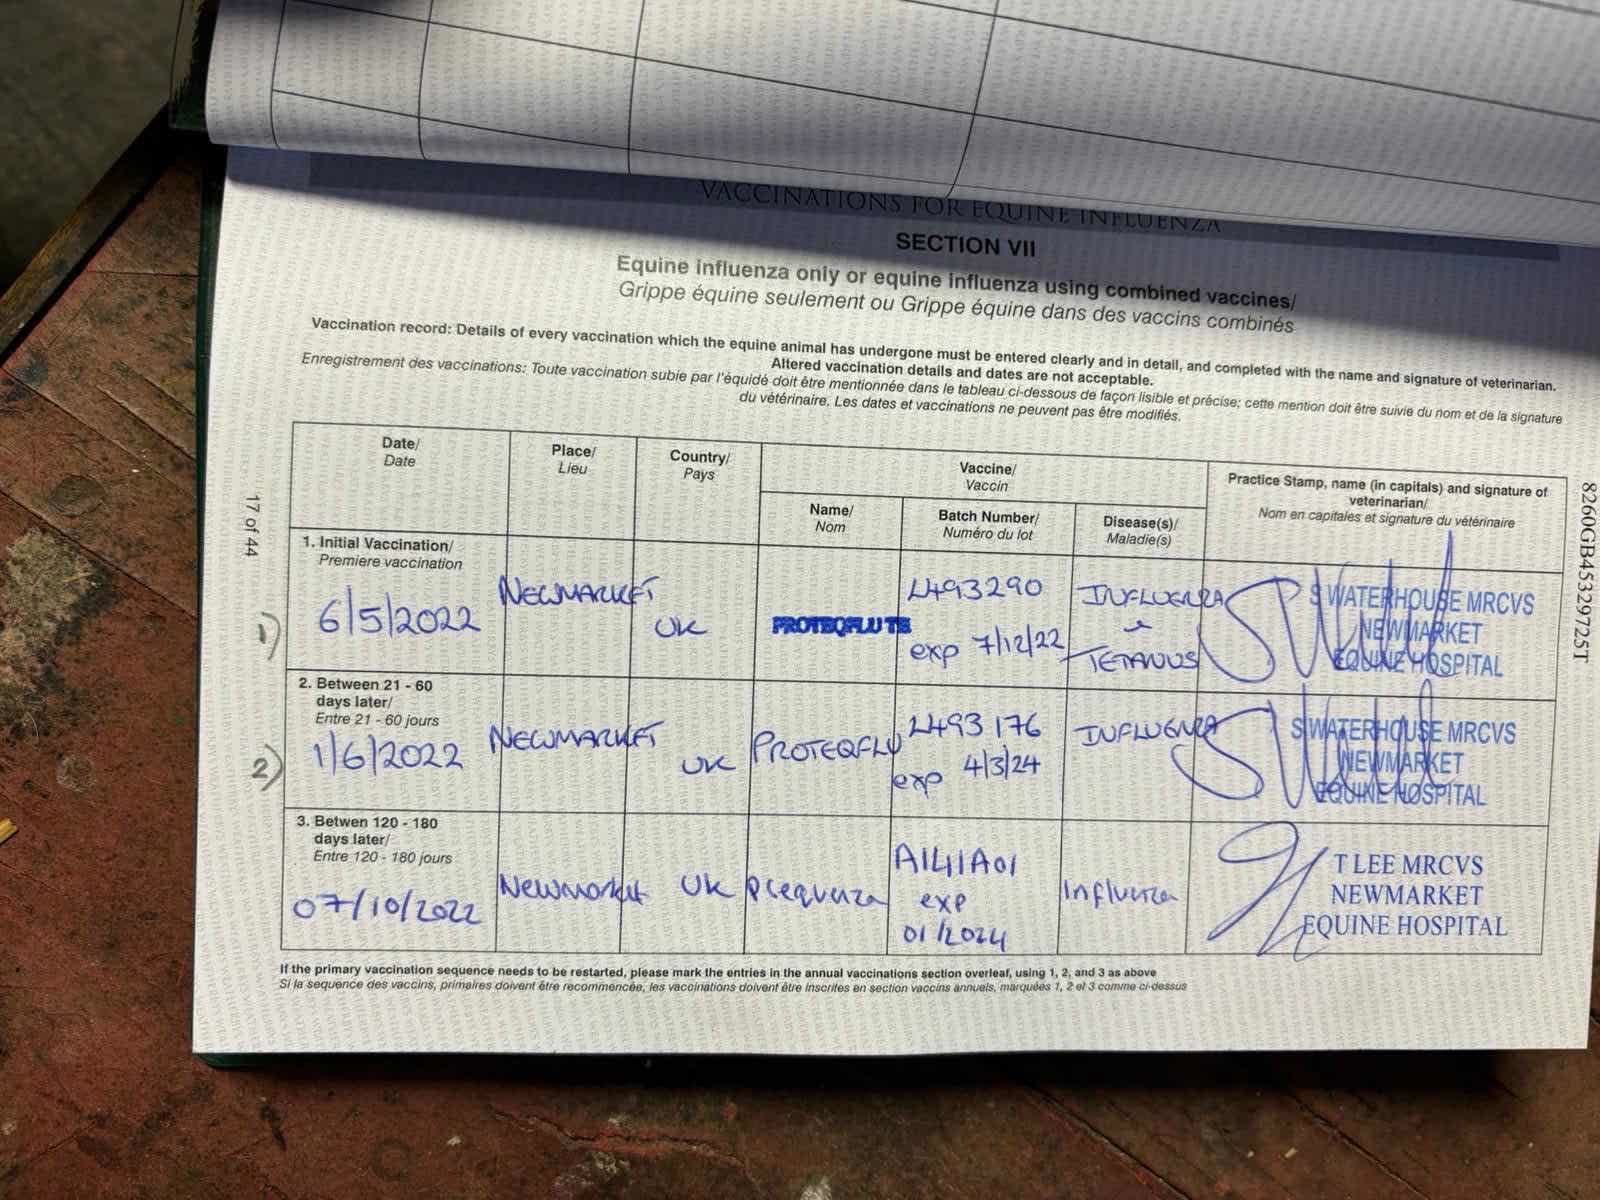 VACCINATIONS FOR EQUINE INFLUENZA
SECTION VII
Equine influenza only or equine influenza using combined vaccines/
Grippe équine seulement ou Grippe équine dans des vaccins combinés
Vaccination record: Details of every vaccination which the equine animal has undergone must be entered clearly and in detail, and completed with the name and signature of veterinarian.
Altered vaccination details and dates are not acceptable.
Enregistrement des vaccinations: Toute vaccination subie par l'équidé doit être mentionnée dans le tableau ci-dessous de façon lisible et précise; cette mention doit être suivie du nom et de la signature
du vétérinaire. Les dates et vaccinations ne peuvent pas être modifiés.
Date/
Date
Place/
Lieu
Country/
Pays
Vaccine/
Vaccin
Name/
Nom
Batch Number/
Numéro du lot
Disease(s)/
Maladie(s)
Practice Stamp, name (in capitals) and signature of
veterinarian/
Nom en capitales et signature du vétérinaire
1. Initial Vaccination/
Premiere vaccination
1)
6/5/2022
NEWMARKET
UK
PROTEQFLU TE
L493290
exp 7/12/22
INFLUENZA
TETANUS
S WATERHOUSE MRCVS
NEWMARKET
EQUINE HOSPITAL
2. Between 21 - 60
days later/
Entre 21 - 60 jours
2)
1/6/2022
NEWMARKET
UK
PROTEQFLU
L493176
exp 4/3/24
INFLUENZA
S WATERHOUSE MRCVS
NEWMARKET
EQUINE HOSPITAL
3. Betwen 120 - 180
days later/
Entre 120 - 180 jours
07/10/2022
Newmarket
UK
prequenza
A141A01
exp
01/2024
Influenza
T LEE MRCVS
NEWMARKET
EQUINE HOSPITAL
If the primary vaccination sequence needs to be restarted, please mark the entries in the annual vaccinations section overleaf, using 1, 2, and 3 as above
Si la sequence des vaccins, primaires doivent être recommencée, les vaccinations doivent être inscrites en section vaccins annuels, marquées 1, 2 et 3 comme ci-dessus
17 of 44
8260GB45329725T